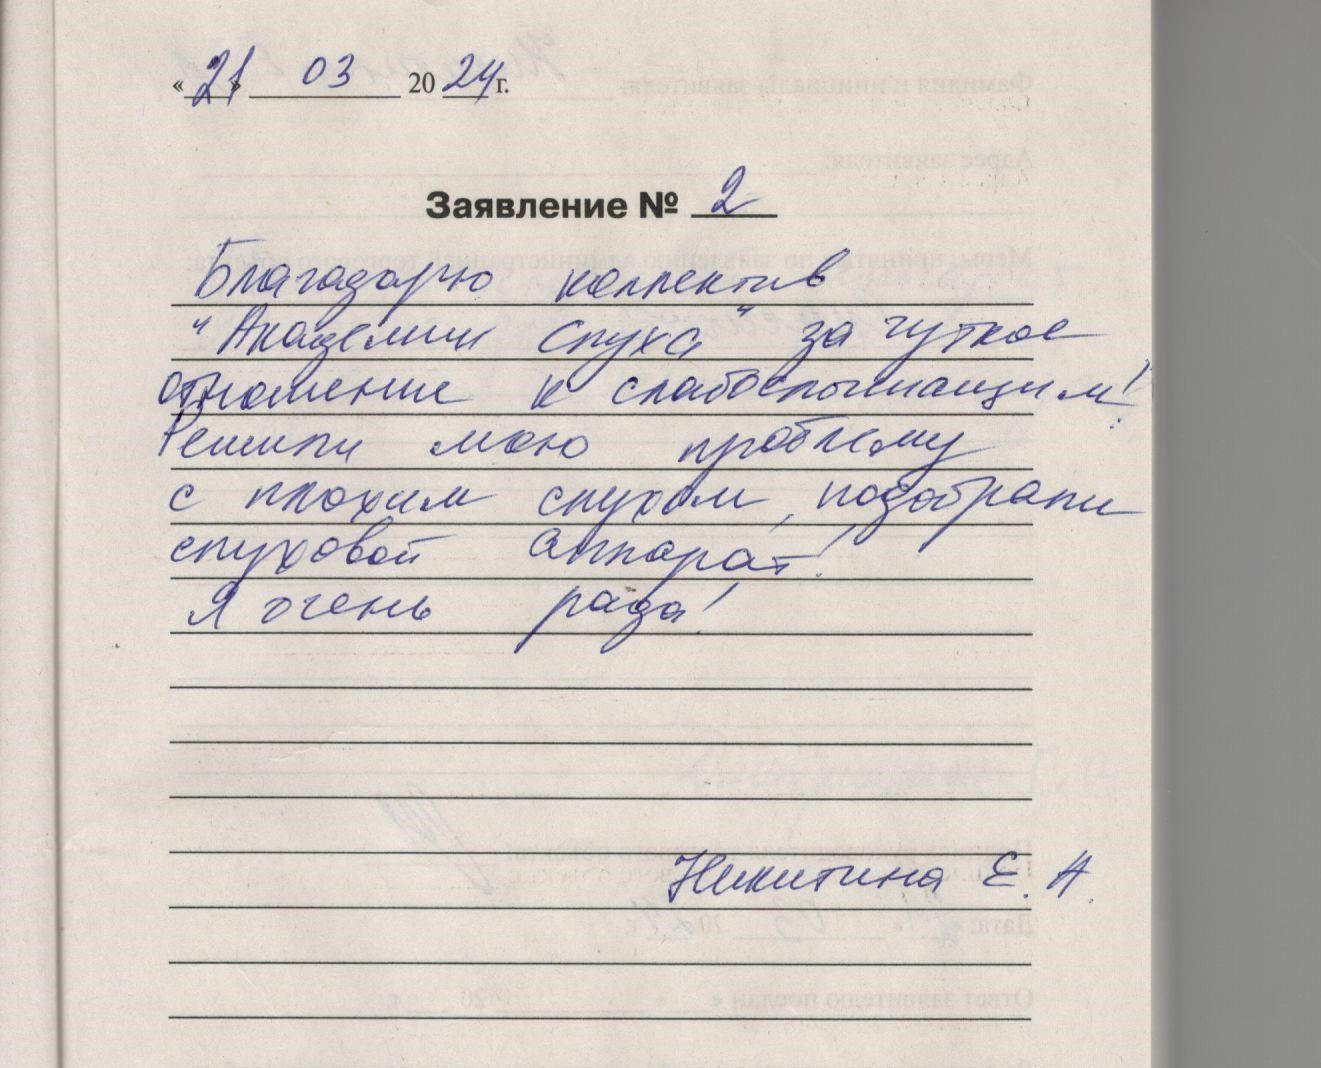 «21» 03 2024 г.
Заявление № 2
Благодарю коллектив
"Академии слуха" за чуткое
отношение к слабослышащим!
Решили мою проблему
с плохим слухом, подобрали
слуховой аппарат!
Я очень рада!
Никитина Е. А.